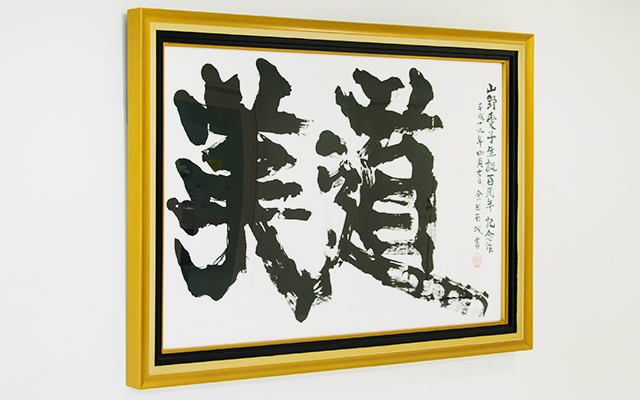 美道
山野愛子生誕百周年記念作
平成十九年四月吉日 金田石城書